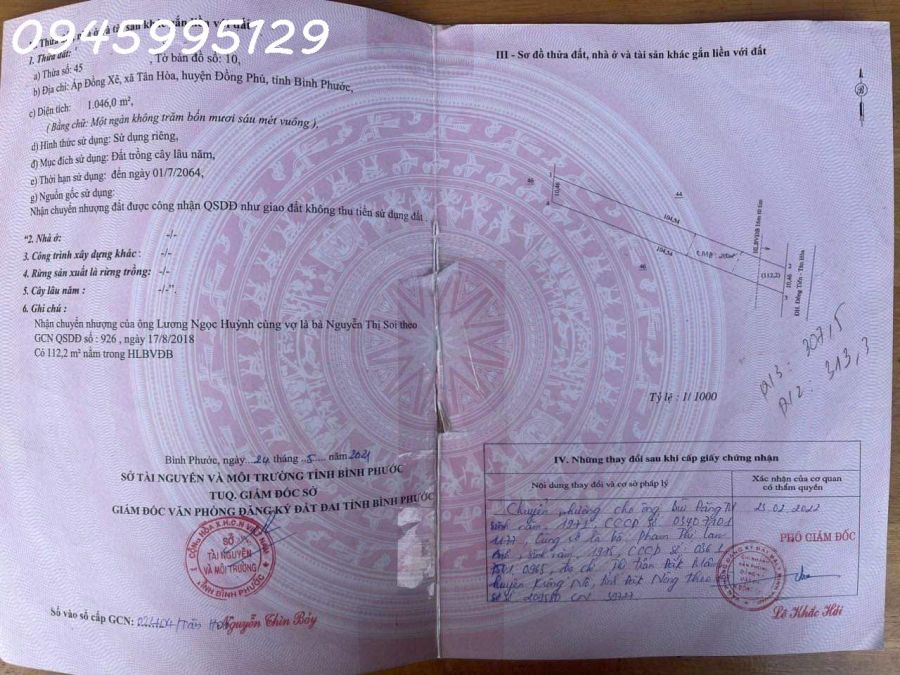 0945995129
1. Thửa đất:
a) Thửa số: 45 , Tờ bản đồ số: 10,
b) Địa chỉ: Ấp Đồng Xê, xã Tân Hòa, huyện Đồng Phú, tỉnh Bình Phước,
c) Diện tích: 1.046,0 m²,
( Bằng chữ: Một ngàn không trăm bốn mươi sáu mét vuông ),
d) Hình thức sử dụng: Sử dụng riêng,
đ) Mục đích sử dụng: Đất trồng cây lâu năm,
e) Thời hạn sử dụng: đến ngày 01/7/2064,
g) Nguồn gốc sử dụng:
Nhận chuyển nhượng đất được công nhận QSDĐ như giao đất không thu tiền sử dụng đất .
"2. Nhà ở: -/-
3. Công trình xây dựng khác : -/-
4. Rừng sản xuất là rừng trồng: -/-
5. Cây lâu năm : -/-".
6. Ghi chú :
Nhận chuyển nhượng của ông Lương Ngọc Huỳnh cùng vợ là bà Nguyễn Thị Soi theo
GCN QSDĐ số : 926 , ngày 17/8/2018
Có 112,2 m² nằm trong HLBVĐB
Bình Phước, ngày 24 tháng 5 năm 2021
SỞ TÀI NGUYÊN VÀ MÔI TRƯỜNG TỈNH BÌNH PHƯỚC
TUQ. GIÁM ĐỐC SỞ
GIÁM ĐỐC VĂN PHÒNG ĐĂNG KÝ ĐẤT ĐAI TỈNH BÌNH PHƯỚC
SỞ
TÀI NGUYÊN
VÀ MÔI TRƯỜNG
TỈNH BÌNH PHƯỚC
Nguyễn Thìn Bảy
Số vào sổ cấp GCN:
III - Sơ đồ thửa đất, nhà ở và tài sản khác gắn liền với đất
B
46
1
10,46
4
44
104,54
104,54
46
HLBVĐB 18m từ tim
(112,2)
2
10,46
3
ĐH. Đồng Tiến - Tân Hòa
Tỷ lệ : 1/ 1000
Đ13 : 307,5
Đ12 : 313,3
IV. Những thay đổi sau khi cấp giấy chứng nhận
Nội dung thay đổi và cơ sở pháp lý
Xác nhận của cơ quan
có thẩm quyền
Chuyển nhượng cho ông Bùi Đăng
năm 1971, CCCD số
cùng vợ là bà Phạm Thị Lan
sinh năm 1975, CCCD số 0361
địa chỉ
huyện Krông Nô, tỉnh Đắk Nông theo
PHÓ GIÁM ĐỐC
Lê Khắc Hải